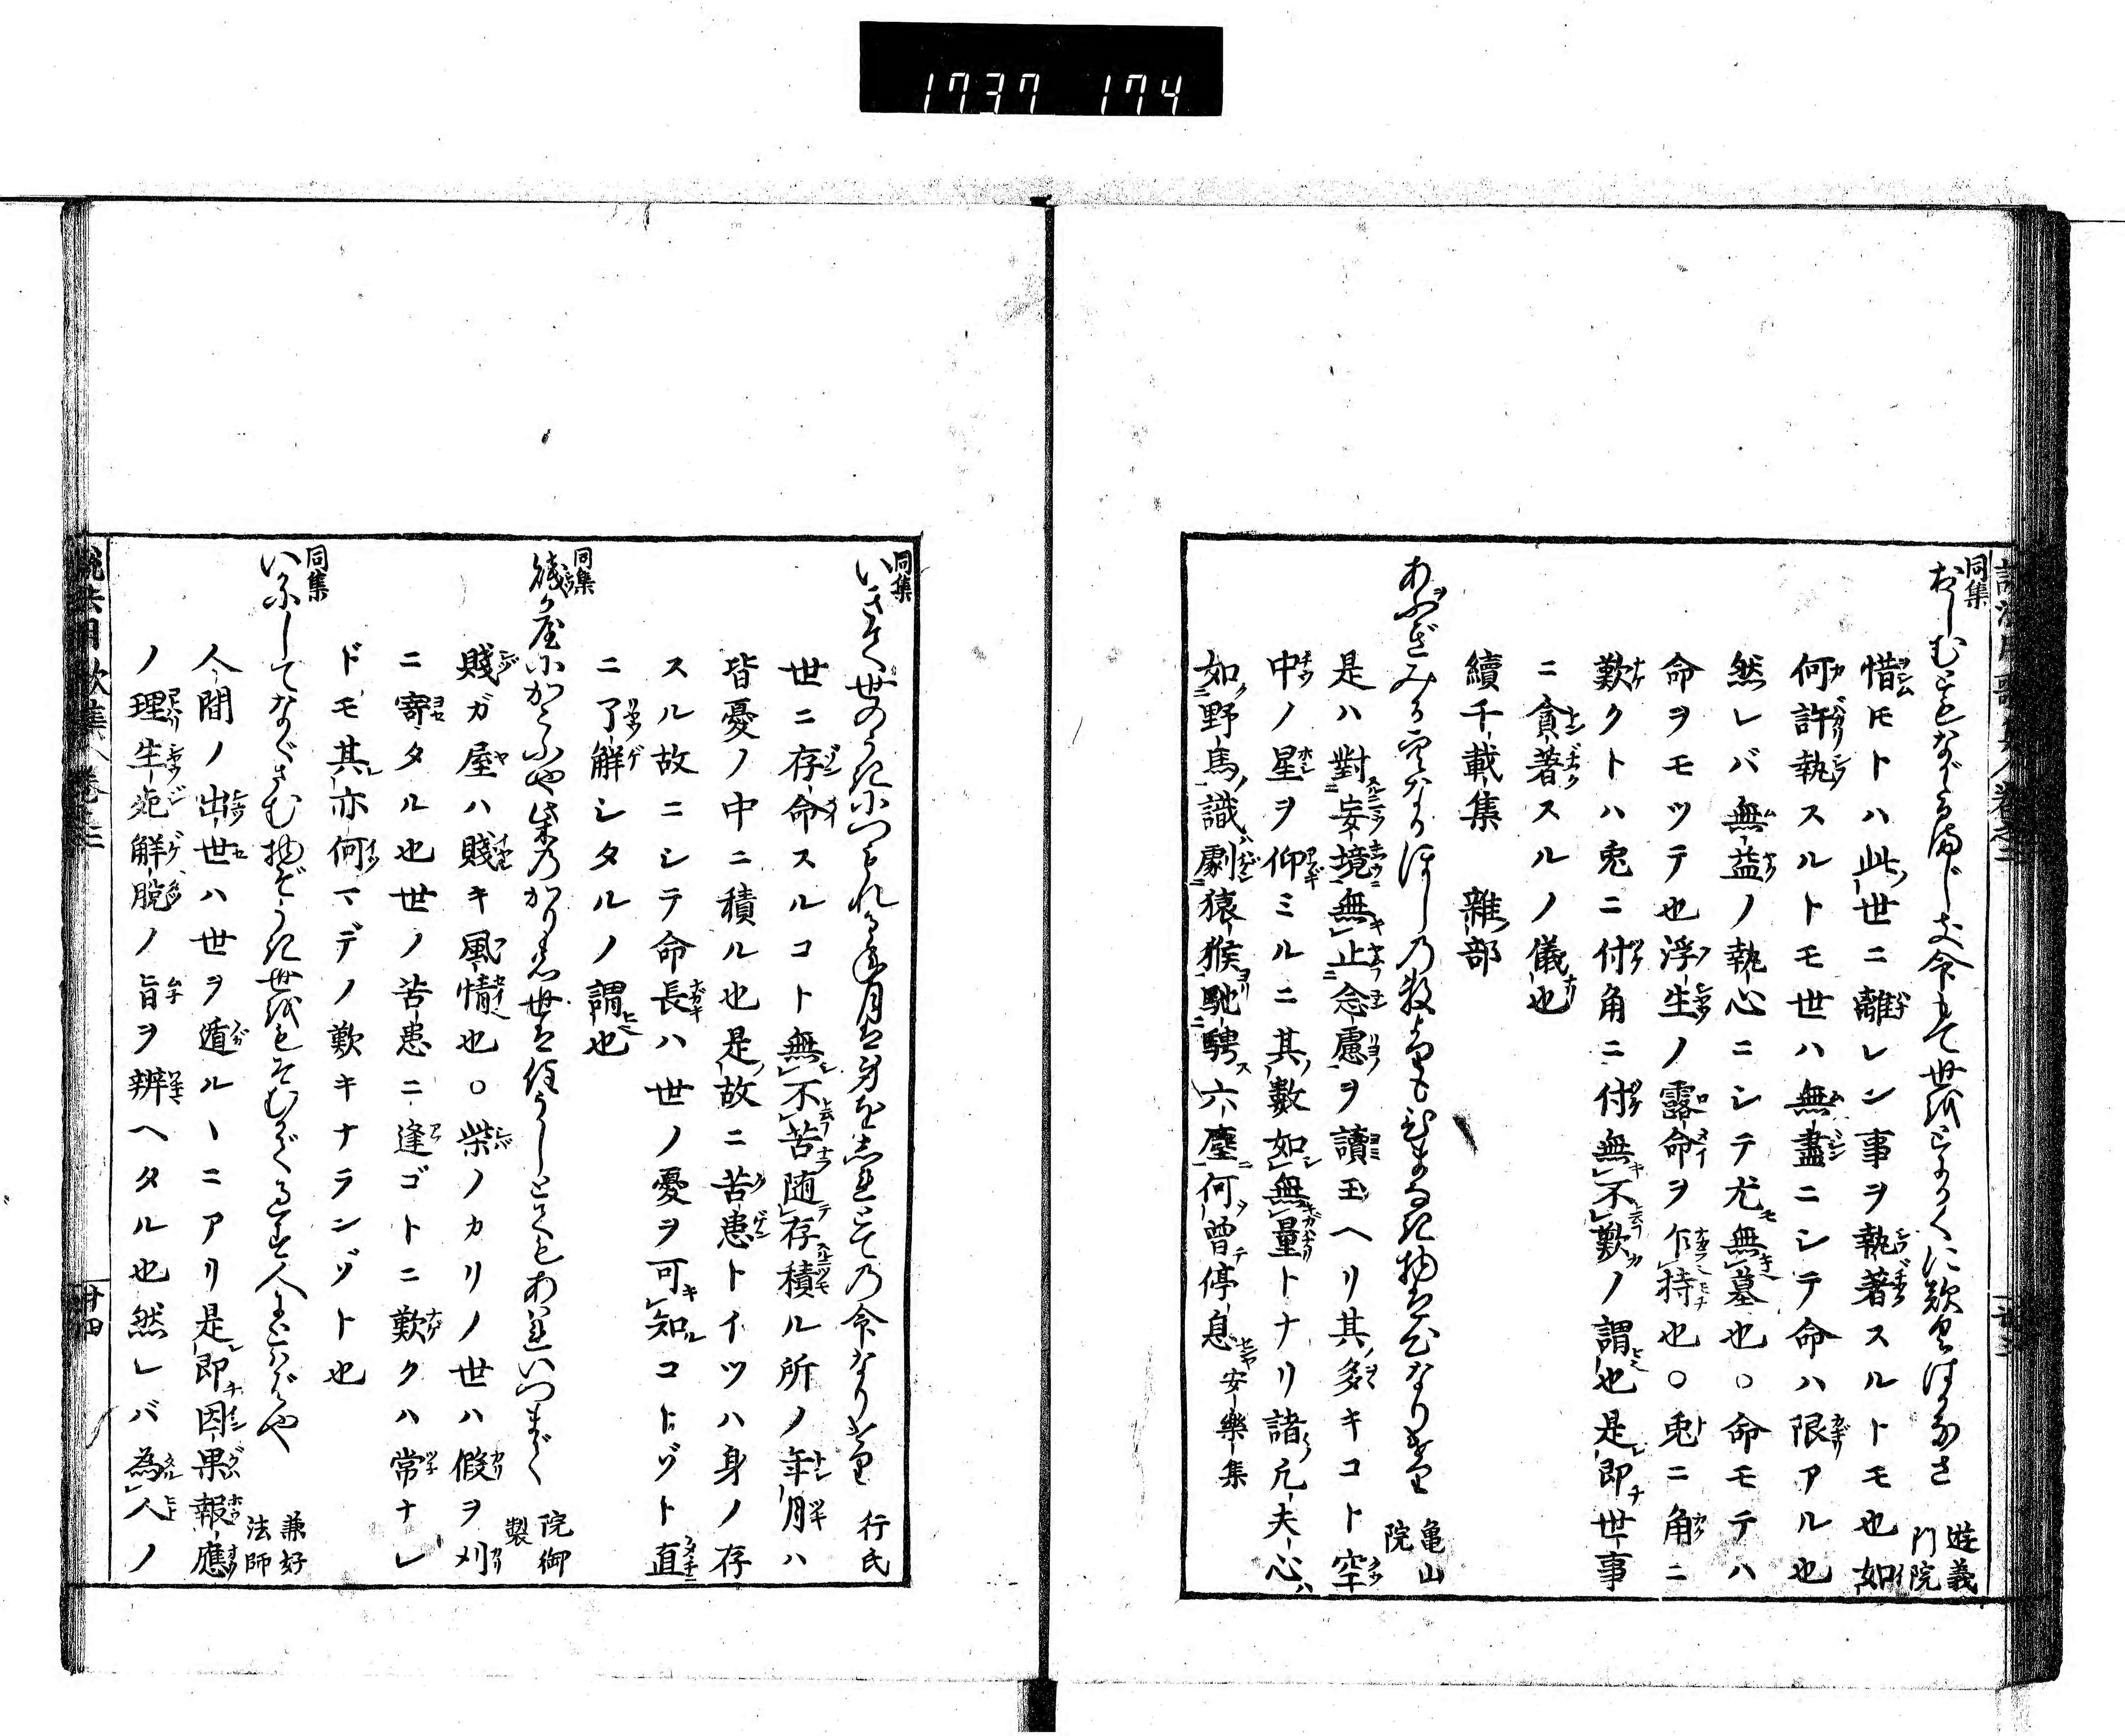 1737 174
同集
おしむともながるまじき命もて世をとにかくに歎くはかなさ 遊義門院
惜モトハ此世ニ離レン事ヲ執著スルトモ也如
何許執スルトモ世ハ無盡ニシテ命ハ限アル也
然レバ無益ノ執心ニシテ尤無墓也○命モテハ
命ヲモツテ也浮生ノ露命ヲ乍持也○兎ニ角ニ
歎クトハ兎ニ付角ニ付無不歎ノ謂也是即世事
ニ貪著スルノ儀也
續千載集 雜部
あふぎみる空なるほしの数よりもひまなき物は心なりけり 亀山院
是ハ對妄境無止念慮ヲ讀玉ヘリ其多キコト空
中ノ星ヲ仰ミルニ其數如無量トナリ諸凡夫心
如野馬識劇猿猴馳騁六塵何曾停息 安樂集
同集
世のうきにつもれる年月は身をしればとての命なりけり 行氏
世ニ存命スルコト無不苦随存積ル所ノ年月ハ
皆憂ノ中ニ積ル也是故ニ苦患トイツハ身ノ存
スル故ニシテ命長ハ世ノ憂ヲ可知コトヅト直
ニ了解シタルノ謂也
同集
賤が屋にかこふや柴のかりの世は住うしとてもあはれいつまで 院御製
賤ガ屋ハ賤キ風情也○柴ノカリノ世ハ假ヲ刈
ニ寄タル也世ノ苦患ニ逢ゴトニ歎クハ常ナレ
ドモ其亦何マデノ歎キナランヅト也
同集
いかにしてなぐさむ物ぞうき世をもそむかですぐす人にとはばや 兼好法師
人間ノ出世ハ世ヲ遁ルヽニアリ是即因果報應
ノ理生死解脱ノ旨ヲ辨ヘタル也然レバ為人ノ
廿四